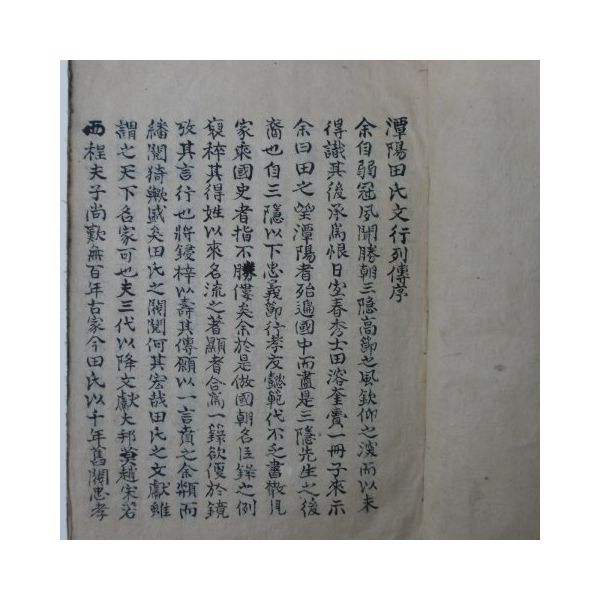 潭陽田氏文行列傳序
余自弱冠夙聞勝朝三隐高節之風欽仰之深而以未
得識其後承爲恨日宓春秀士田溶奎賷一冊子來示
余曰田之望潭陽者殆遍國中而盡是三隱先生之後
裔也自三隱以下忠義節行孝友懿範代不乏書散見
家乘國史者指不勝僂矣余於是倣國朝名臣錄之例
裒稡其得姓以來名流之著顯者合爲一錄欲便於鏡
攷其言行也將鋟梓以壽其傳願以一言賁之余纇而
繙閱猗歟盛矣田氏之閥閱何其宏哉田氏之文獻雖
謂之天下名家可也夫三代以降文獻大邦莫趙宋若
而程夫子尚歎無百年古家今田氏以千年舊閥忠孝